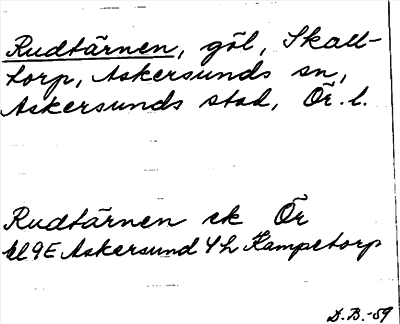 Rudtärnen, göl, Skall-
torp, Askersunds sn,
Askersunds stad, Ör. l.
Rudtärnen ek Ör
bl 9E Askersund 4h Kampetorp
D.B.-59